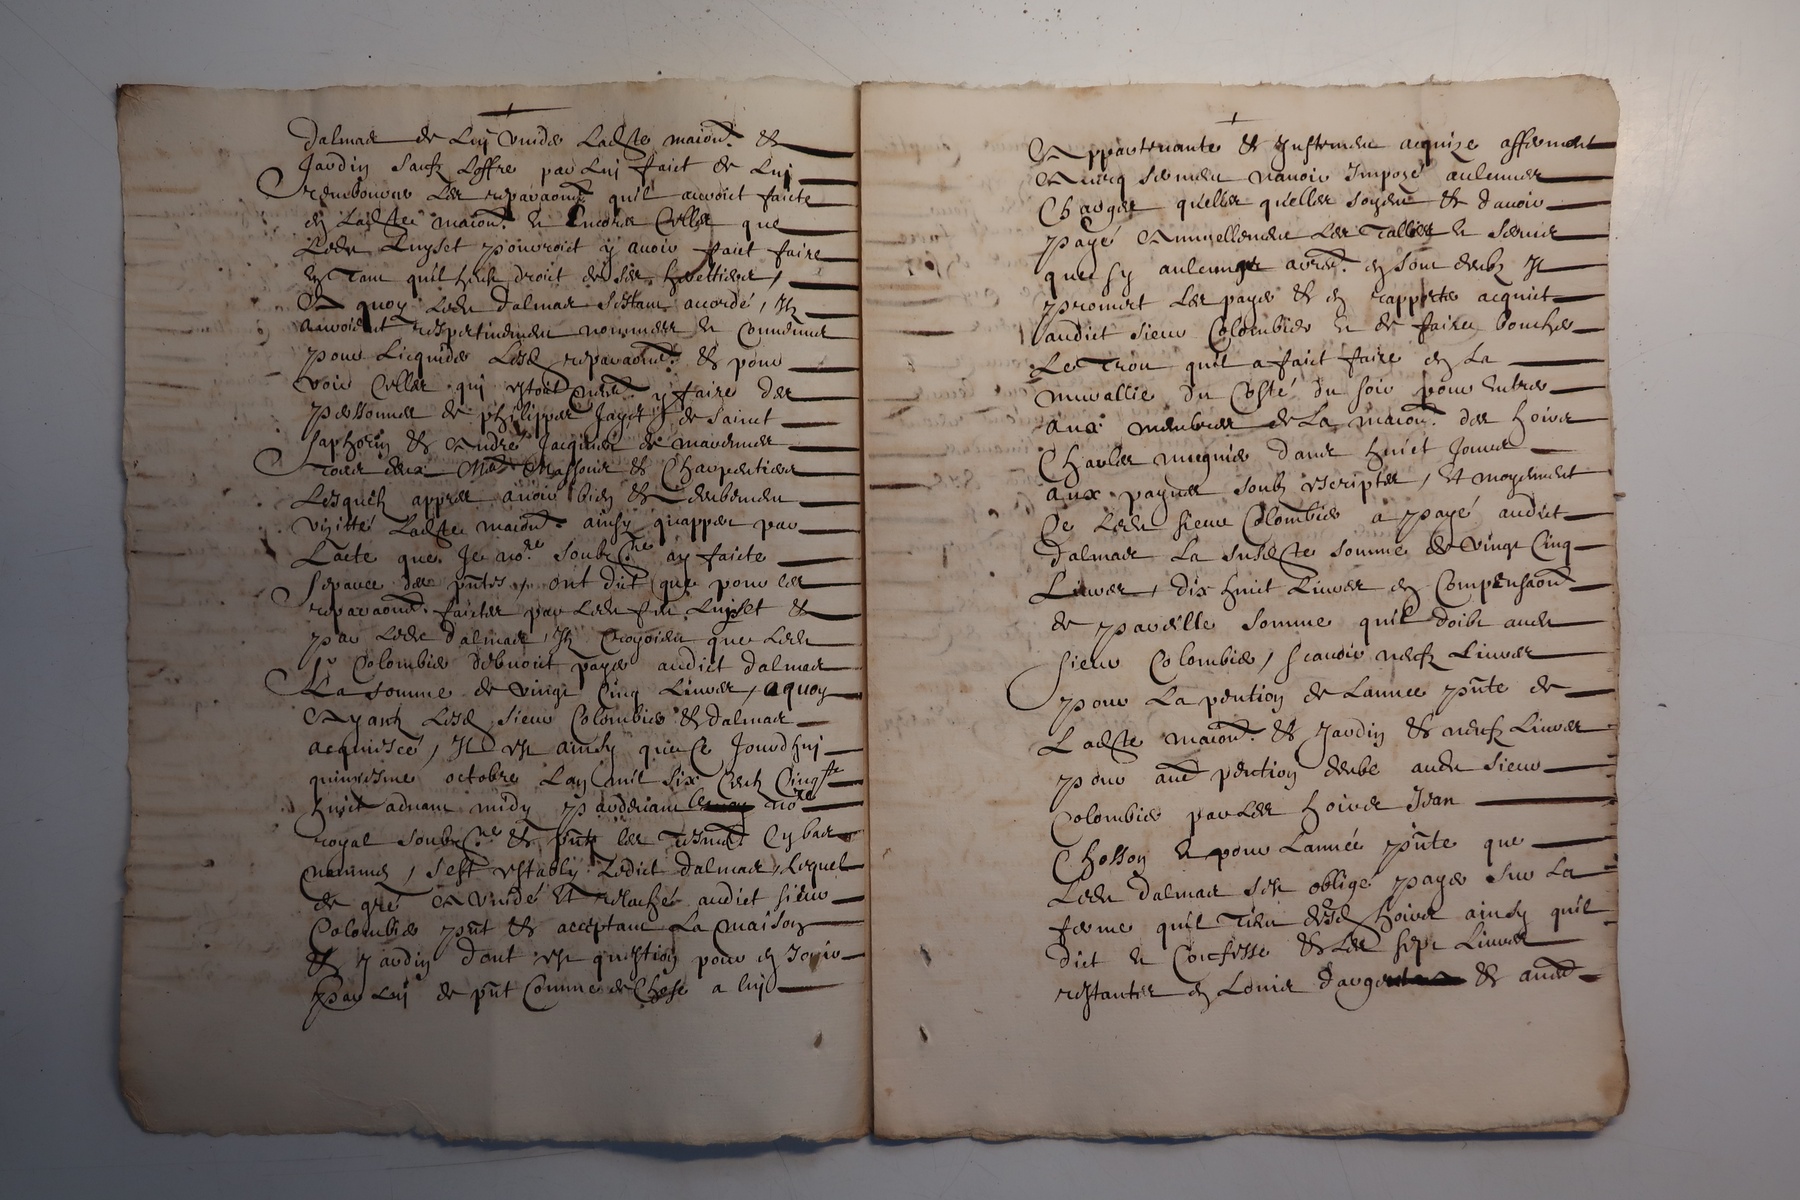 dalmas de Luy vuider Ladte maison et
Jardin sauf Loffre par Luy faict de Luy
rembourser Les reparaons quil auroict faicte
en Ladte maison et Encores Celles que
Ledt Luyset pourroit y auoir faict faire
en tant quil heust droit de ses herettiers,
A quoy Ledt dalmas sestant accordé, Ilz
auroient respectiuement nommes et Conuenus
pour Licquider Lesd reparaons et pour
voir Celles qui estoit necess.e y faire des
personnes de philippes Jayet de Sainct
saphorin et André Jacquier de marennes
tous deux Mes Massons et Charpentiers
Lesquelz appres auoir bien et deubement
vizitté Ladte maison ainsy quappert par
Lacte que Je nore soubzne ay faicte
separee des pntes, ont dict que pour les
reparaons faictes par Ledt feu Luyset et
par Ledt dalmas, Ilz Croyoient que Ledt
sr Colombier debuoit payer audict dalmas
La somme de vingt Cinq Liures, a quoy
Ayantz Lesd sieur Colombier et dalmas
acquiescé, Il est ainsy que Ce Jourdhuy
quinzesme octobre Lan mil six Centz Cinqte
huict aduant midy pardeuant nore
royal soubzne et pntz les tesmoins Cy bas
nommes, sest estably Ledict dalmas, Lequel
de gré A vuidé Et relasché audict sieur
Colombier pnt et acceptant La maison
et Jardin dont est question pour en Jouir
par Luy de pnt Comme de Chose a luy
Appartenante et Justement acquize affirmant
Auecq serment nauoir Imposé aulcunes
Charges quelles quelles soyent et dauoir
payé Annuellement Les tallies et seruis
que sy aulcungs arre. en sont deubz Il
promet Les payer et en rapporter acquict
audict sieur Colombier et de faire boucher
Le Trou quil a faict faire en La
murallie du Costé du soir pour Entrer
aux membres de La maison des hoirs
Charles mugnier dans huict Jours
aux paynes soubz escriptes, Et moyennant
Ce Ledt sieur Colombier a payé audict
dalmas La susdte somme de vingt Cinq
Liures, dix huict Liures en Compensaon
de pareille somme quil doibt audt
sieur Colombier, scauoir neufz Liures
pour La pention de Lannee pnte de
Ladte maison et Jardin et neufz Liures
pour aue pention deube audt sieur
Colombier par Les hoirs Jean
Chosson et pour Lannée pnte que
Ledt dalmas sest obligé payer sur La
ferme quil tient desd hoirs ainsy quil
dict et Confesse et Les sept Liures
restantes en Louis dargent et aue